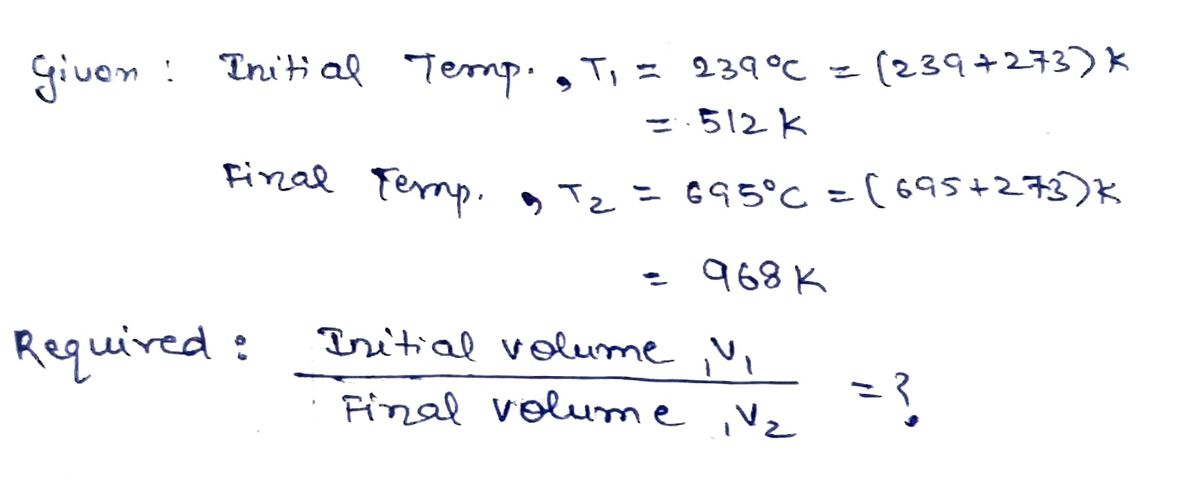 Given : Initial Temp., T₁ = 239°C = (239+273) K
= 512 K
Final Temp., T₂ = 695°C = (695+273) K
= 968 K
Required : Initial volume, V₁
= ?
Final volume, V₂